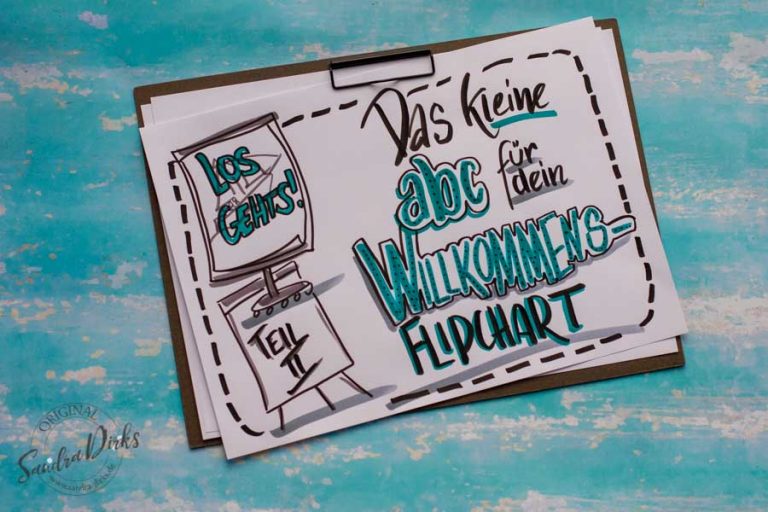 LOS
GEHTS!
TEIL
II
Das kleine
abc für
dein
WILLKOMMENS-
FLIPCHART
ORIGINAL
Sandra Dirks